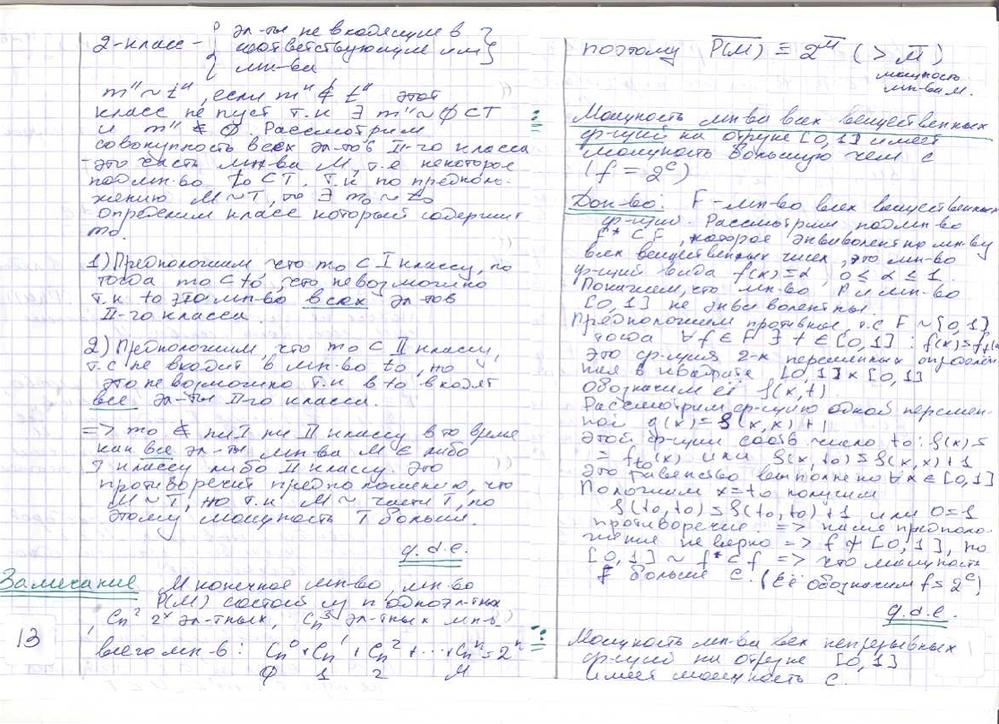 2-класс - { эл-ты не входящие в
соответствующие им
мн-ва }
m'' ~ t'', если m'' ∉ t'' этот
класс не пуст т.к ∃ m'' ~ ∅ ⊂ T
и m'' ∉ ∅. Рассмотрим
совокупность всех эл-тов II-го класса
- это часть мн-ва M, т.е некоторое
подмн-во t₀ ⊂ T, т.к по предполо-
жению M ~ T, то ∃ m₀ ~ t₀
определим класс который содержит
m₀.
1) Предположим что m₀ ⊂ I классу, но
тогда m₀ ⊂ t₀, что невозможно
т.к t₀ это мн-во всех эл-тов
II-го класса.
2) Предположим, что m₀ ⊂ II классу,
т.е не входит в мн-во t₀, но
это невозможно т.к в t₀ входят
все эл-ты II-го класса.
=> m₀ ∉ ни I ни II классу в то время
как все эл-ты мн-ва M ∈ либо
I классу либо II классу. Это
противоречит предположению, что
M ~ T, но т.к M ~ части T, по
этому мощность T больше.
q.d.e.
Замечание M конечное мн-во, мн-во
P(M) состоит из n одноэл-тных
, Cn² 2ˣ эл-тных, Cn³ эл-тных мн-в
всего мн-в: Cn⁰ + Cn¹ + Cn² + ... + Cnⁿ = 2ⁿ
∅ 1 2 M
13
поэтому P(M) = 2ᴹ ( > M )
мощность
мн-ва M.
Мощность мн-ва всех вещественных
ф-ций на отрезке [0,1] имеет
мощность большую чем c
(f = 2ᶜ)
Док-во: F - мн-во всех вещественных
ф-ций. Рассмотрим подмн-во
F* ⊂ F, которое эквивалентно мн-ву
всех вещественных чисел, это мн-во
ф-ций вида f(x) = α, 0 ≤ α ≤ 1.
Покажем, что мн-во F и мн-во
[0,1] не эквивалентны.
Предположим противное, т.е F ~ [0,1]
тогда ∀ f ∈ F ∃ t ∈ [0,1] : f(x) = f
это ф-ция 2-х переменных определен
ная в квадрате [0,1] x [0,1]
обозначим её f(x,t)
Рассмотрим ф-цию одной перемен-
ной g(x) = f(x,x) + 1
этой ф-ции соотв число t₀: g(x) =
= ft₀(x) или f(x,t₀) = f(x,x) + 1
Это равенство выполнено ∀ x ∈ [0,1]
Положим x = t₀ получим
f(t₀,t₀) = f(t₀,t₀) + 1 или 0 = 1
противоречие => наше предполо-
жение не верно => f ≁ [0,1], но
[0,1] ~ f* ⊂ f => что мощность
F больше C. (Её обозначим f = 2ᶜ)
q.d.e.
Мощность мн-ва всех непрерывных
ф-ций на отрезке [0,1]
имеет мощность C.